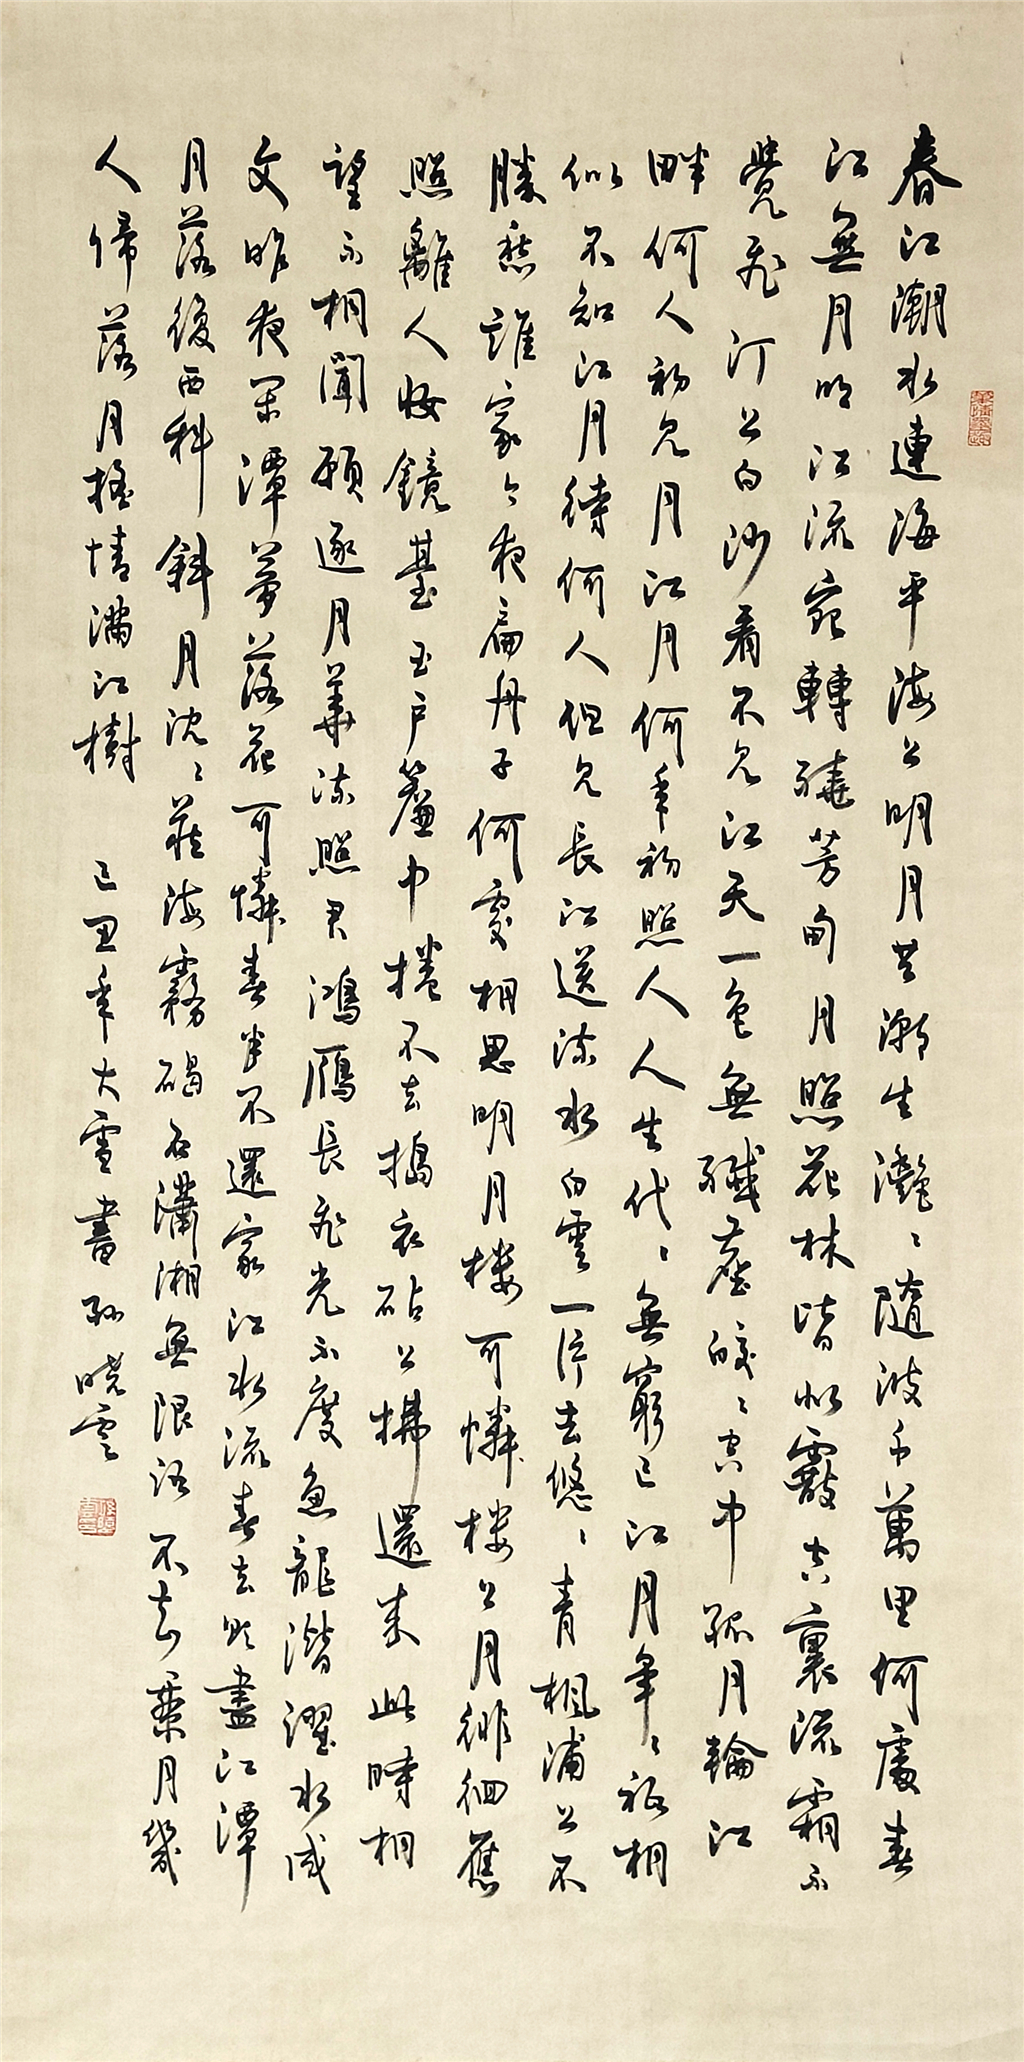 春江潮水連海平海上明月共潮生灔〻隨波千萬里何處春
江無月明江流宛轉繞芳甸月照花林皆似霰空裏流霜不
覺飛汀上白沙看不見江天一色無纖塵皎〻空中孤月輪江
畔何人初見月江月何年初照人人生代〻無窮已江月年〻祇相
似不知江月待何人但見長江送流水白雲一片去悠〻青楓浦上不
勝愁誰家今夜扁舟子何處相思明月樓可憐樓上月徘徊應
照離人妝鏡臺玉戶簾中捲不去搗衣砧上拂還來此時相
望不相聞願逐月華流照君鴻雁長飛光不度魚龍潛躍水成
文昨夜閑潭夢落花可憐春半不還家江水流春去欲盡江潭
月落後西斜斜月沈〻藏海霧碣石瀟湘無限路不知乘月幾
人歸落月搖情滿江樹　己丑年大雪書孫曉雲